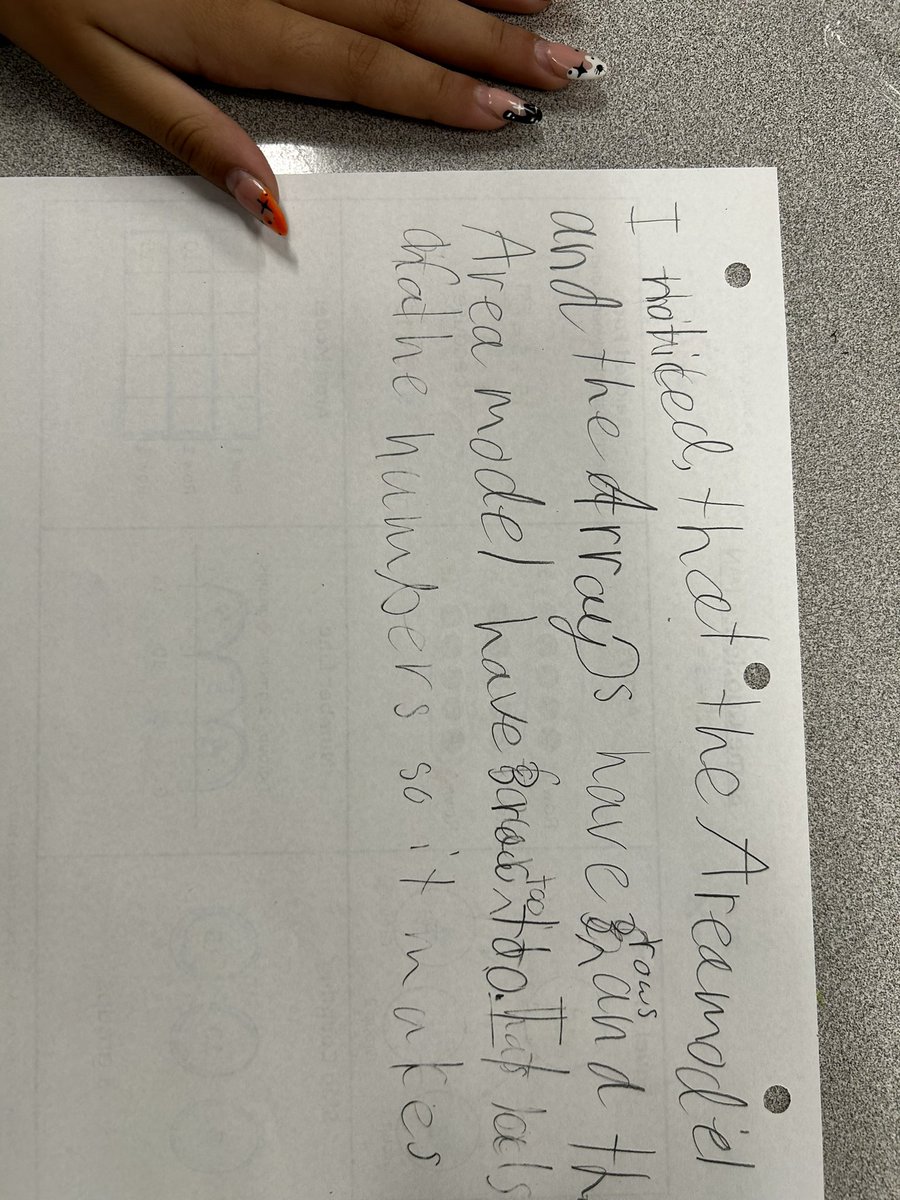 I noticed, that the Areamodel
and the Arrays have 8 rows and th
Area model have 8 rows too. That's
the numbers so it makes